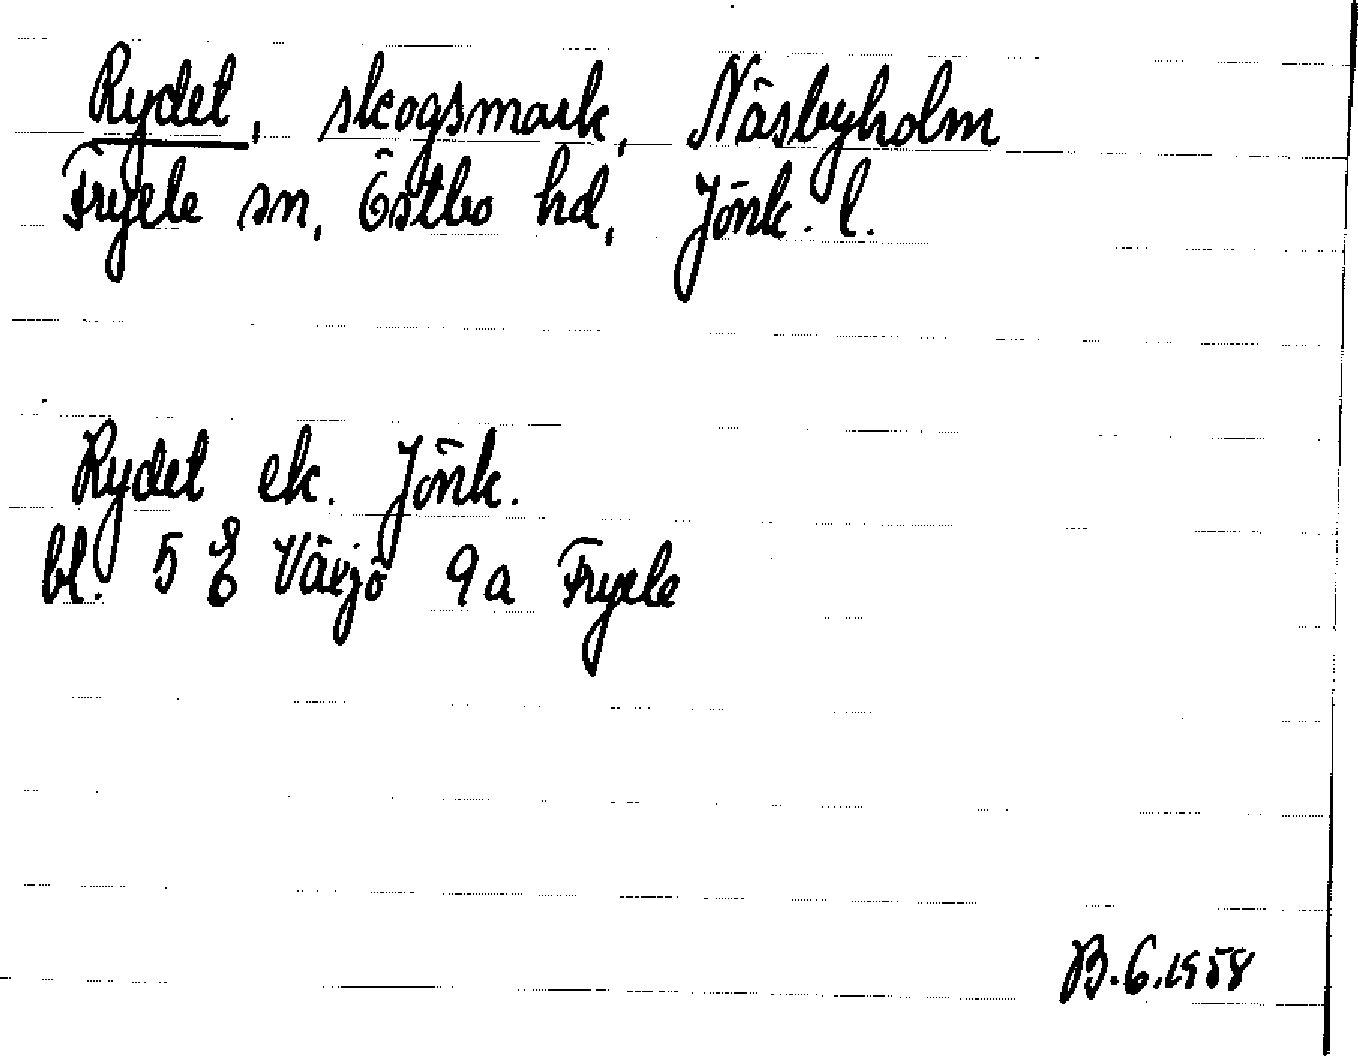 Rydet, skogsmark, Näsbyholm
Fryele sn, Östbo hd, Jönk. l.
Rydet ek. Jönk.
bl. 5 E Växjö 9a Fryele
B.G.1958